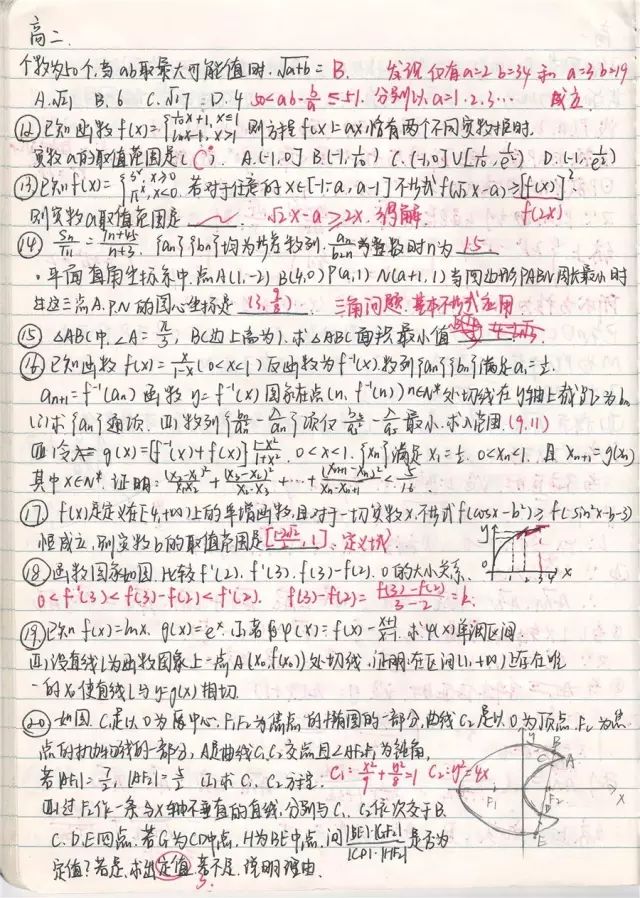 高二.
个数为50个,当ab取最大可能值时.√(a+b) = B. 发现仅有a=2 b=34 和 a=3 b=19
A.√21 B. 6 C.√17 D. 4 50<ab-b/a≤51. 分别以a=1.2.3… 成立.
⑫已知函数f(x)={1/10x+1, x≤1 lnx-1, x>1 则方程f(x)=ax恰有两个不同实数根时.
实数a的取值范围是(C). A.(-1,0] B.(-1,1/10) C.(-1,0]∪[1/10,1/e²) D.(-1,1/e²)
⑬已知f(x)={ x≥0 x<0. 若对于任意的x∈[-1-a, a-1]不等式f(√2x-a)≥[f(x)]²
则实数a取值范围是 √2x-a≥2x.得解. f(2x)
⑭ Sn/Tn = 7n+45/n+3. {an}{bn}均为等差数列. an/b2n为整数时n为 15
·平面直角坐标系中.点A(1,-2) B(4,0) P(a,1) N(a+1,1)当四边形PABN周长最小时
过这三点A.P.N的圆心坐标是 (3,9/8) 三角问题.基本不等式应用
⑮ △ABC中.∠A=π/3, BC边上高为1.求△ABC面积最小值
⑯已知函数f(x)=x/1-x(0<x<1)反函数为f⁻¹(x).数列{an}{bn}满足a₁=1/2.
an+1=f⁻¹(an) 函数y=f⁻¹(x)图象在点(n, f⁻¹(n)) n∈N*处切线在y轴上截距为bn
(1)求{an}通项. (2)数列{bn/an²-λ/an}项仅b5/a5²-λ/a5最小.求λ范围.(9,11)
(3)令 g(x)=[f⁻¹(x)+f(x)]1-x²/1+x². 0<x<1. {xn}满足x₁=1/2. 0<xn<1. 且xn+1=g(xn)
其中x∈N*.证明:(x₂-x₁)²/x₁x₂+(x₃-x₂)²/x₂·x₃+…+(xn+1-xn)²/xn·xn+1<5/16.
⑰ f(x)是定义在[-4,+∞)上的单增函数,且对于一切实数x.不等式f(cosx-b²)≥f(sin²x-b-3)
恒成立,则实数b的取值范围是[1/2-√2, 1]. 定义域 y
⑱函数图象如图.比较f'(2). f'(3). f(3)-f(2). 0的大小关系. 0 1 2 3 4 x
0<f'(3)<f(3)-f(2)<f'(2). f(3)-f(2)=f(3)-f(2)/3-2=k.
⑲已知f(x)=lnx. g(x)=eˣ. (1)若φ(x)=f(x)-x+1/x-1.求φ(x)单调区间
(2)设直线l为函数图象上一点A(x₀,f(x₀))处切线.证明:在区间(1,+∞)上存在唯
一的x₀使直线l与y=g(x)相切.
⑳如图. C₁是以O为原中心.F₁F₂为焦点的椭圆的一部分,曲线C₂是以O为顶点F₂为焦
点的抛物线的一部分,A是曲线C₁C₂交点且∠AF₂F₁为钝角,
若|AF₁|=7/2, |AF₂|=5/2 (1)求C₁. C₂方程. C₁:x²/9+y²/8=1 C₂:y²=4x
(2)过F₂作一条与X轴不垂直的直线,分别与C₁. C₂依次交于B.
C. D.E四点.若G为CD中点. H为BE中点.问|BE|·|GF₂|/|CD|·|HF₂|是否为
定值?若是.求出定值.若不是.说明理由.
3.
y B C A F₁ F₂ x D E